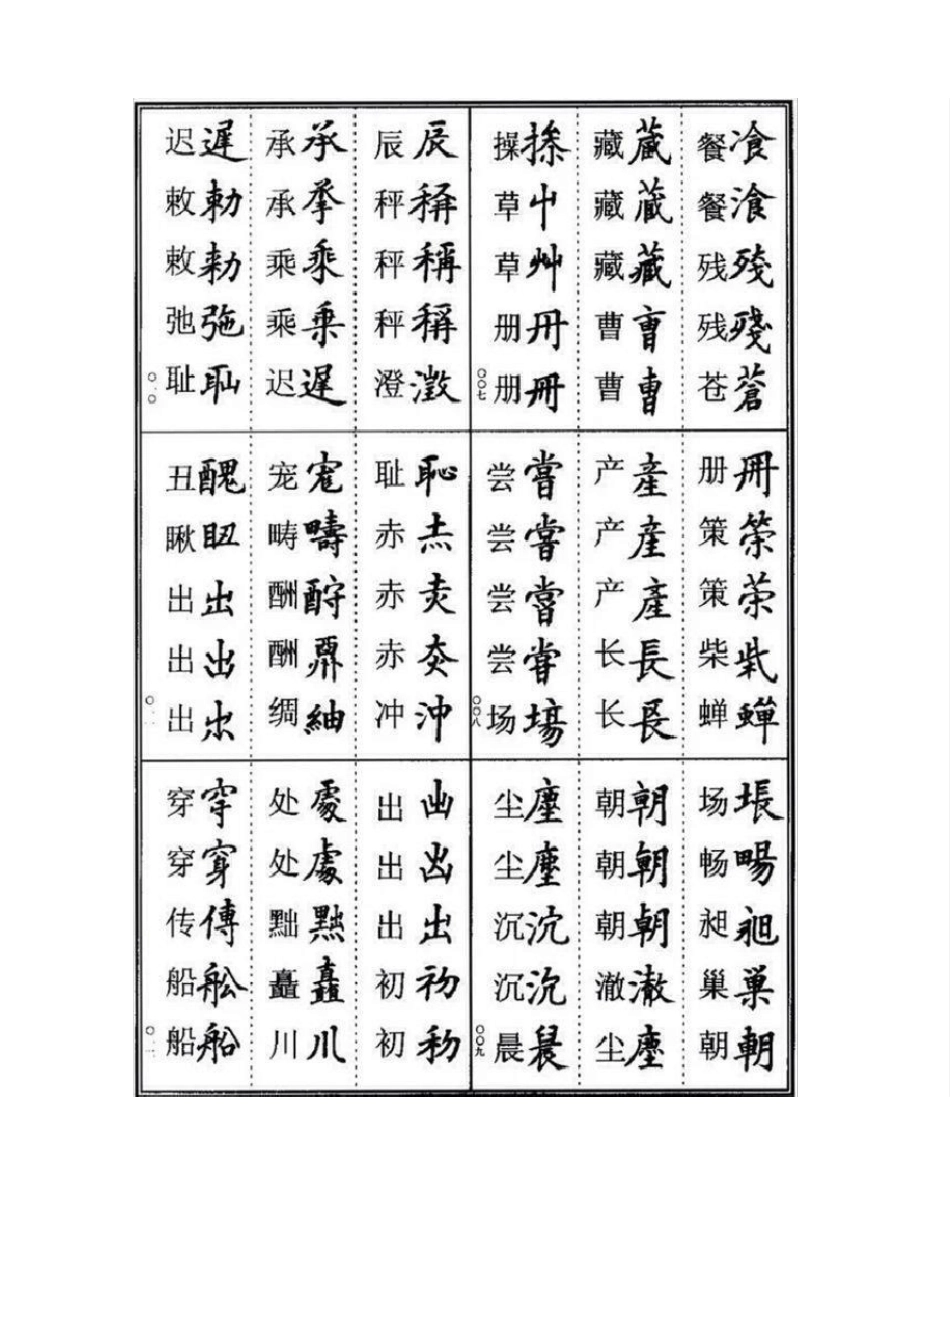 餐飡 餐湌 残殘 残殘 苍蒼
藏蔵 藏蔵 藏藏 曹曺 曹曺
操 草屮 草艸 册冊 册冊
〇〇七
册冊 策筞 策 柴 蝉蟬
产産 产産 产產 长長 长長
尝嘗 尝嘗 尝嘗 尝甞 场塲
〇〇八
场 畅暘 昶昶 巢巣 朝朝
朝朝 朝朝 朝朝 澈澈 尘塵
尘塵 尘塵 沉沉 沉沉 晨晨
〇〇九
辰辰 秤稱 秤稱 秤稱 澄澂
承承 承 乘乗 乘乗 迟遲
迟遲 敕勅 敕勑 弛 耻耻
〇一〇
耻恥 赤 赤 赤 冲沖
宠 畴疇 酬 酬 绸紬
丑醜 瞅 出出 出出 出
〇一一
出 出 出出 初初 初
处處 处處 黜 矗矗 川川
穿穿 穿穿 传傳 船舩 船船
〇一二